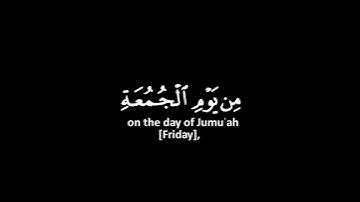 مِن يَوْمِ ٱلْجُمُعَةِ
on the day of Jumuʿah
[Friday],